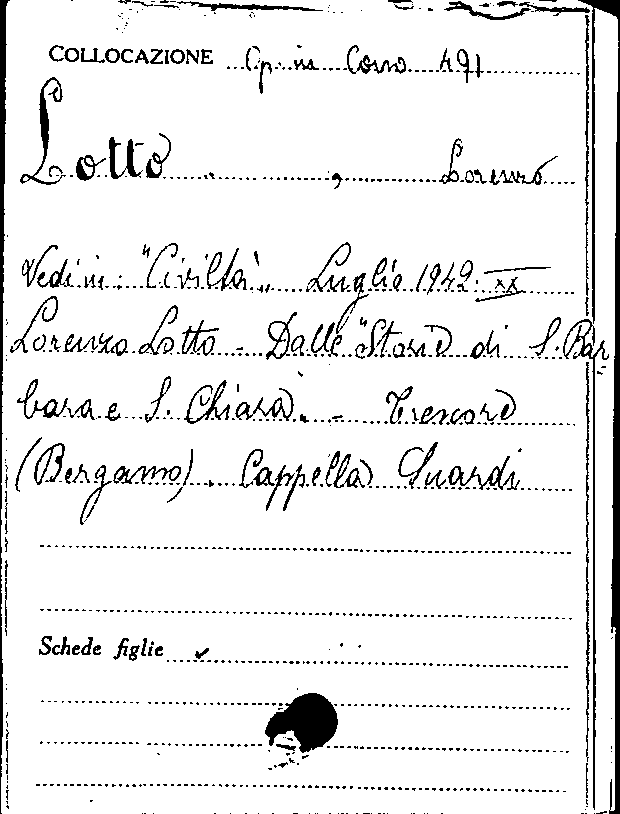 COLLOCAZIONE Op. in Corso 491
Lotto , Lorenzo
Vedi in: "Civiltà„ Luglio 1942. XX
Lorenzo Lotto - Dalle "Storie di S. Bar
bara e S. Chiara„. - Trescore
(Bergamo). Cappella Suardi
Schede figlie